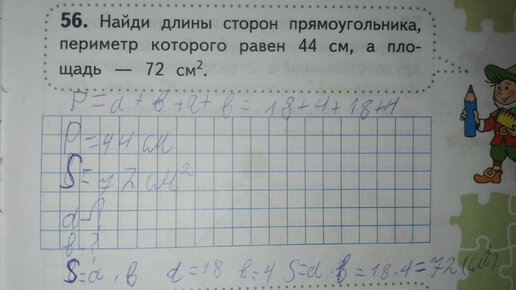 56. Найди длины сторон прямоугольника,
периметр которого равен 44 см, а пло-
щадь — 72 см².
P = a + b + a + b = 18+4+18+4
P = 44 см
S = 72 см²
a - ?
b - ?
S = a · b   a = 18   b = 4   S = a · b = 18 · 4 = 72 (см²)